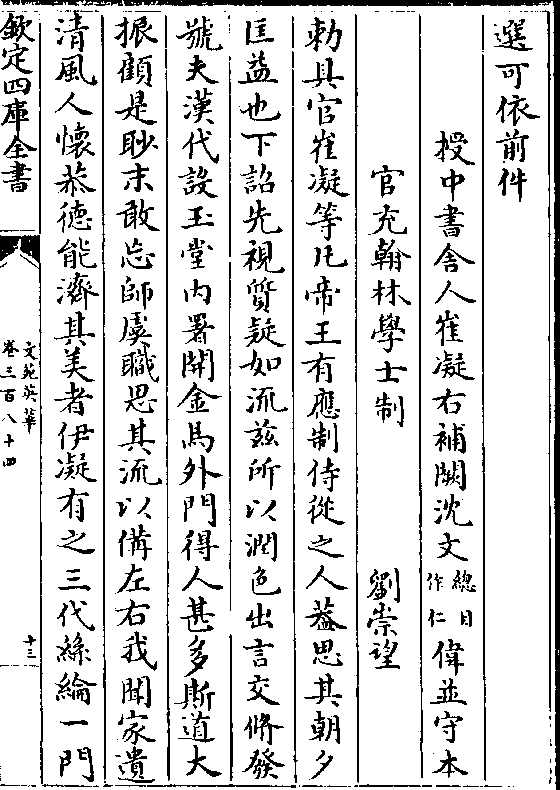 選可依前件
授中書舍人崔凝右補闕沈文總目作仁偉並守本
官充翰林學士制
劉崇望
勅具官崔凝等凡帝王有應制侍從之人葢思其朝夕
匡益也下詔先視質疑如流兹所以潤色出言交脩發
號夫漢代設玉堂内署開金馬外門得人甚多斯道大
振顧是眇末敢忘師虞職思其流以備左右我聞家遺
清風人懷恭徳能濟其美者伊凝有之三代絲綸一門
欽定四庫全書
文苑英華
卷三百八十四
十三